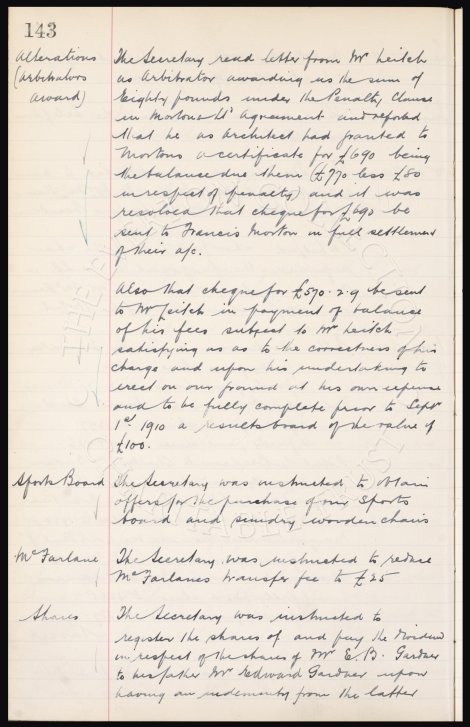 143
Alterations
(Arbitrators
award)
The Secretary read letter from Mr Leitch
as Arbitrator awarding us the sum of
Eighty pounds under the Penalty Clause
in Mortons Ld Agreement and reported
that he as Architect had granted to
Mortons a certificate for £690 being
the balance due them (£770 less £80
in respect of penalty) and it was
resolved that cheque for £690 be
sent to Francis Morton in full settlement
of their a/c.
Also that cheque for £570.2.9 be sent
to Mr Leitch in payment of balance
of his fees subject to Mr Leitch
satisfying us as to the correctness of his
charge and upon his undertaking to
erect on our ground at his own expense
and to be fully complete prior to Sept
1st 1910 a results board of the value of
£100.
Sports Board
The Secretary was instructed to obtain
offers for the purchase of our Sports
board and sundry wooden chairs
McFarlane
The Secretary was instructed to reduce
McFarlanes transfer fee to £25
Shares
The Secretary was instructed to
register the shares of and pay the dividend
in respect of the shares of Mr E. B. Gardner
to his father Mr Edward Gardner upon
having an indemnity from the latter